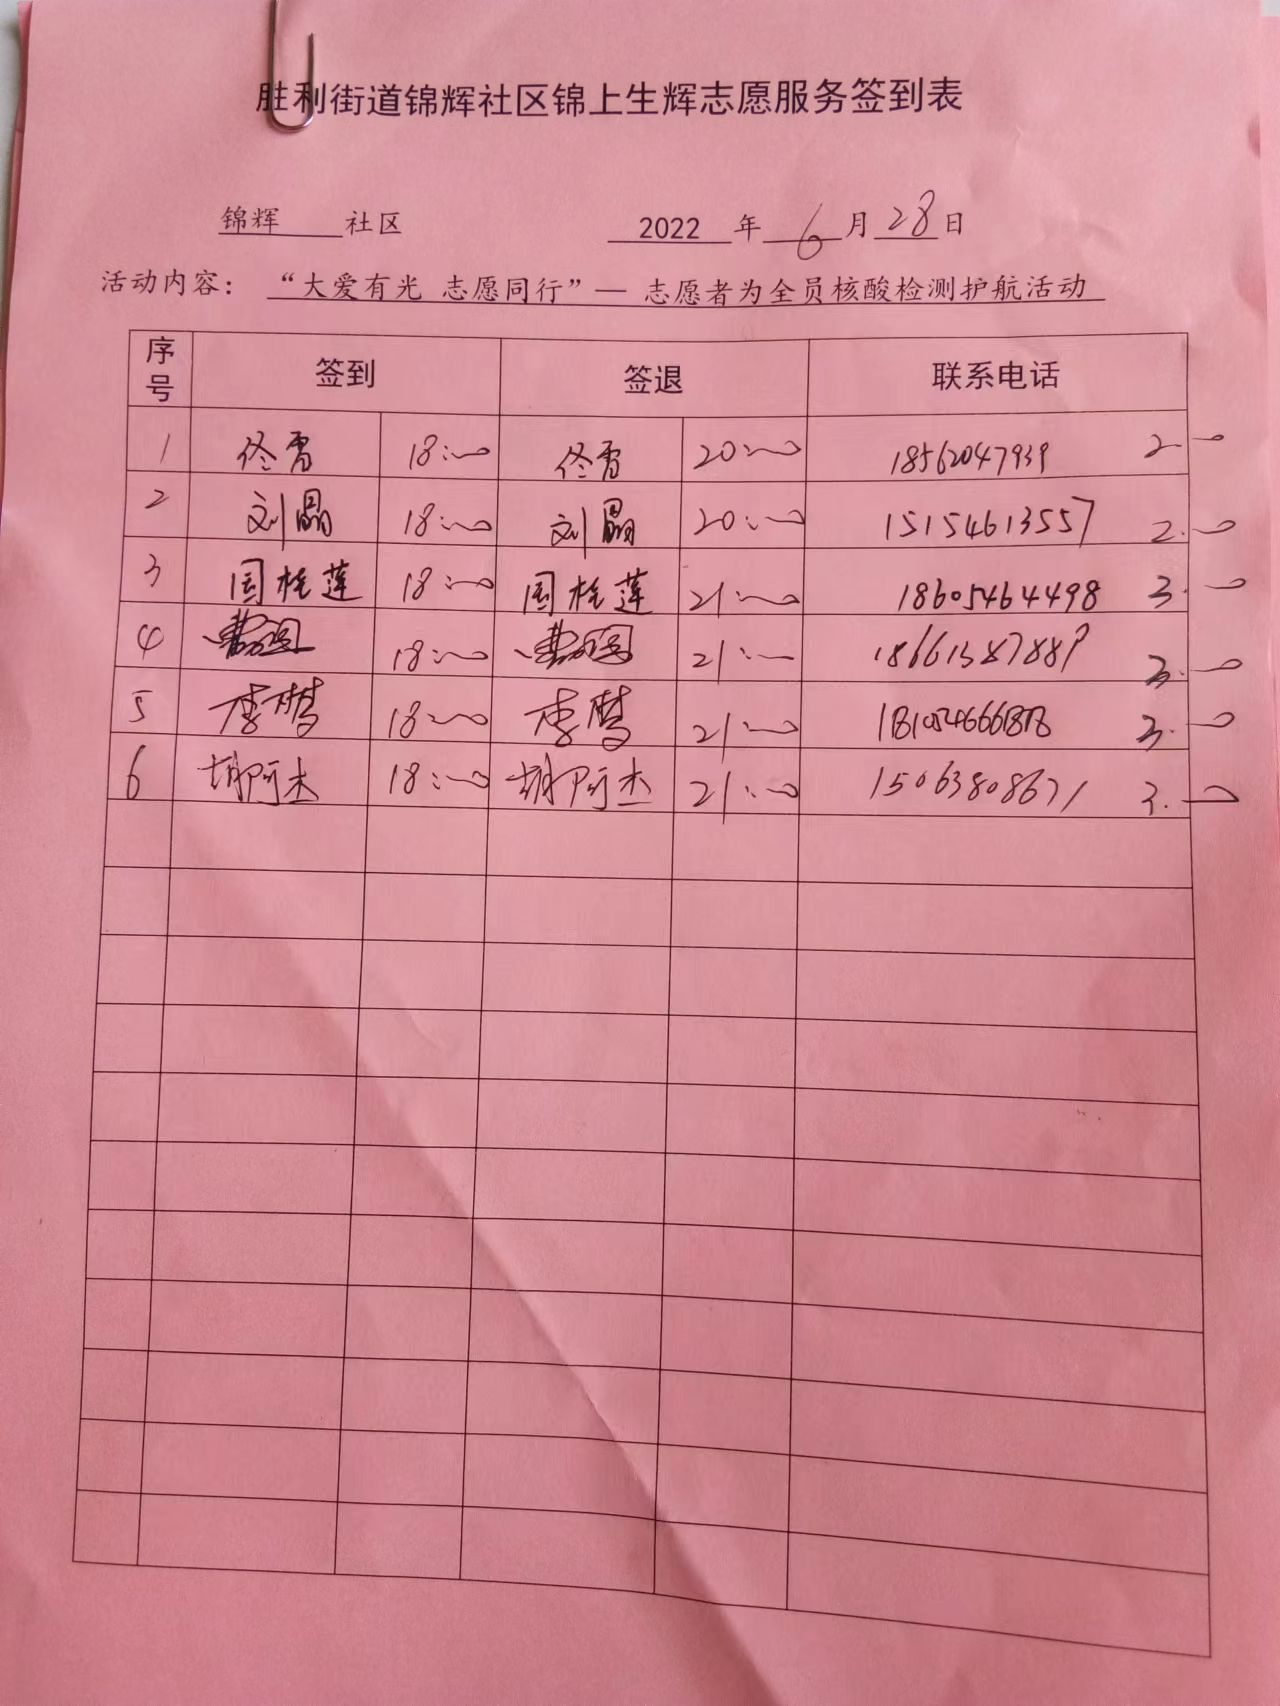 胜利街道锦辉社区锦上生辉志愿服务签到表
锦辉 社区 2022 年 6 月 28 日
活动内容：“大爱有光 志愿同行”— 志愿者为全员核酸检测护航活动
序号 签到 签退 联系电话
1 佟霄 18:00 佟霄 20:00 18562047939 2.0
2 刘晶 18:00 刘晶 20:00 15154613557 2.0
3 国桂莲 18:00 国桂莲 21:00 18605464498 3.0
4 18:00 21:00 18661387889 3.0
5 李梦 18:00 李梦 21:00 3.0
6 胡阿杰 18:00 胡阿杰 21:00 15063808671 3.0